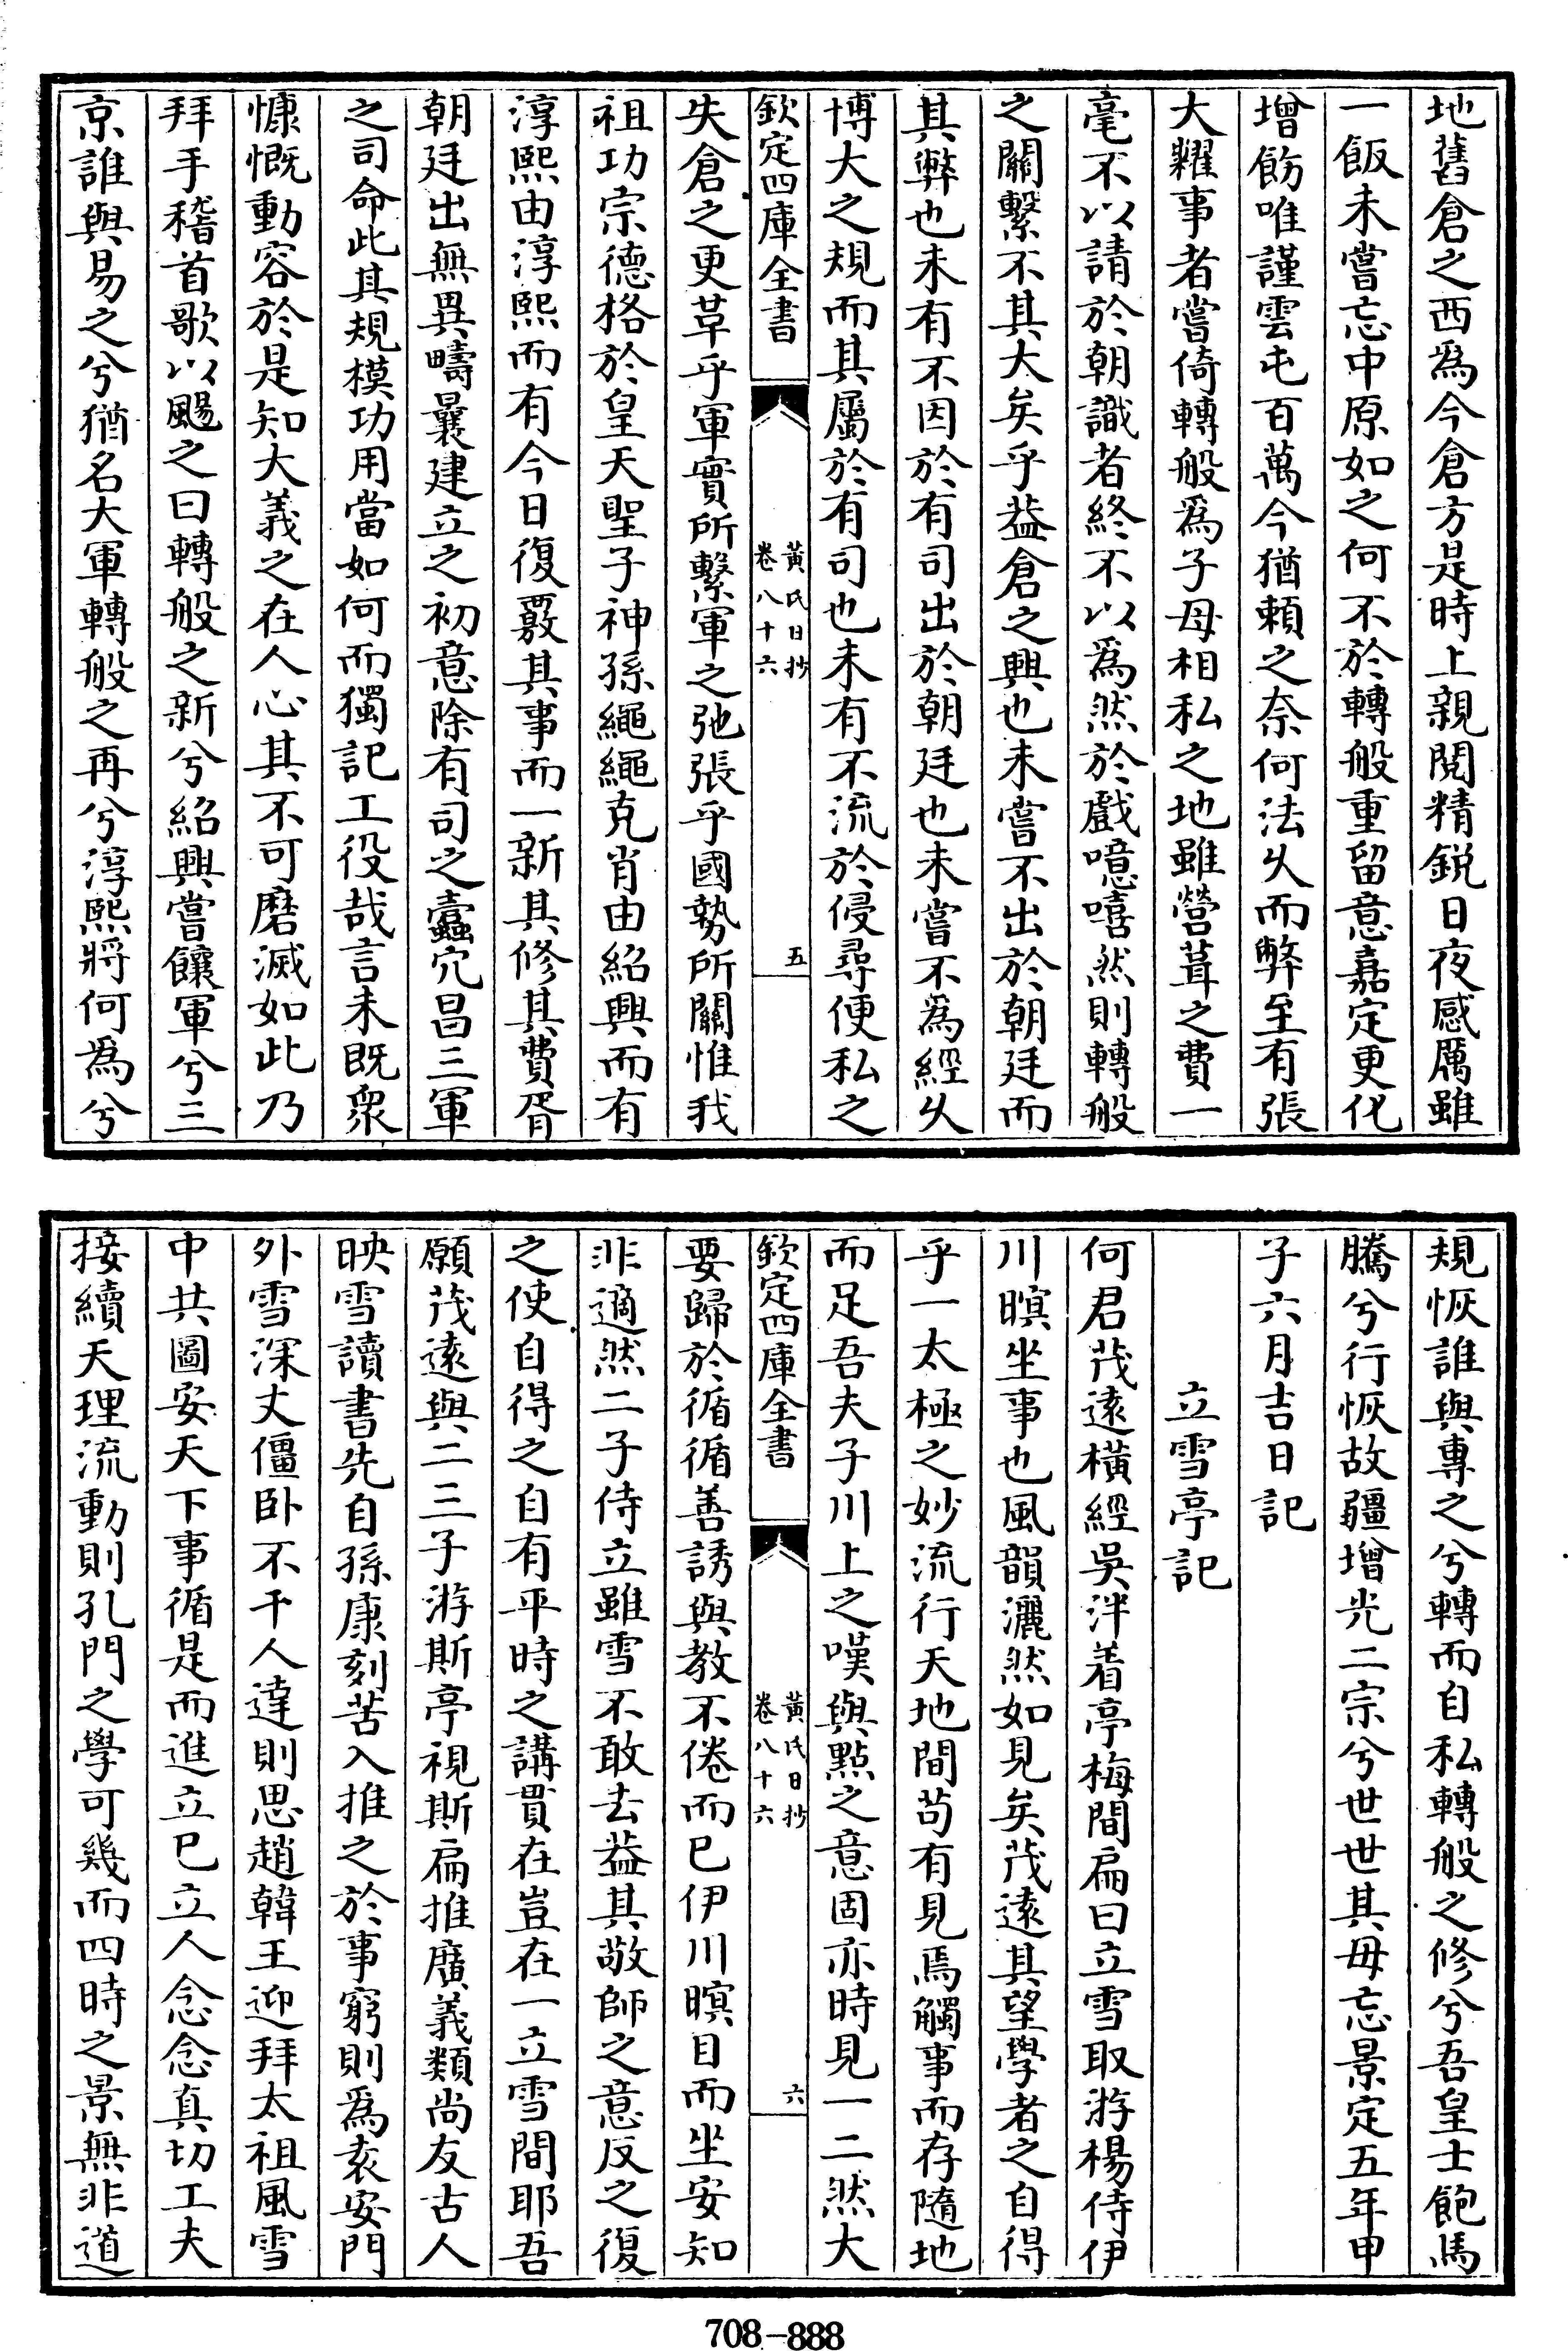 地舊倉之西為今倉方是時上親閱精銳日夜感厲雖
一飯未嘗忘中原如之何不於轉般重留意嘉定更化
增飭唯謹雲屯百萬今猶頼之奈何法乆而弊至有張
大糶事者嘗倚轉般爲子母相私之地雖營葺之費一
毫不以請於朝識者終不以爲然於戲噫嘻然則轉般
之關繫不其大矣乎葢倉之興也未嘗不出於朝廷而
其弊也未有不因於有司出於朝廷也未嘗不爲經乆
博大之規而其屬於有司也未有不流於侵尋便私之
欽定四庫全書
黃氏日抄
卷八十六
五
失倉之更革乎軍實所繫軍之弛張乎國勢所關惟我
祖功宗德格於皇天聖子神孫繩繩克肖由紹興而有
淳熙由淳熙而有今日復覈其事而一新其修其費胥
朝廷出無異疇曩建立之初意除有司之蠹穴昌三軍
之司命此其規模功用當如何而獨記工役哉言未既衆
慷慨動容於是知大義之在人心其不可磨滅如此乃
拜手稽首歌以颺之曰轉般之新兮紹興嘗饟軍兮三
京誰與易之兮猶名大軍轉般之再兮淳熙將何為兮
規恢誰與專之兮轉而自私轉般之修兮吾皇士飽馬
騰兮行恢故疆增光二宗兮世世其毋忘景定五年甲
子六月吉日記
立雪亭記
何君茂遠橫經吳泮着亭梅間扁曰立雪取游楊侍伊
川瞑坐事也風韻灑然如見矣茂遠其望學者之自得
乎一太極之妙流行天地間苟有見焉觸事而存隨地
而足吾夫子川上之嘆與點之意固亦時見一二然大
欽定四庫全書
黃氏日抄
卷八十六
六
要歸於循循善誘與教不倦而已伊川瞑目而坐安知
非適然二子侍立雖雪不敢去葢其敬師之意反之復
之使自得之自有平時之講貫在豈在一立雪間耶吾
願茂遠與二三子游斯亭視斯扁推廣義類尚友古人
映雪讀書先自孫康刻苦入推之於事窮則爲袁安門
外雪深丈僵卧不干人達則思趙韓王迎拜太祖風雪
中共圖安天下事循是而進立已立人念念真切工夫
接續天理流動則孔門之學可幾而四時之景無非道
708-888